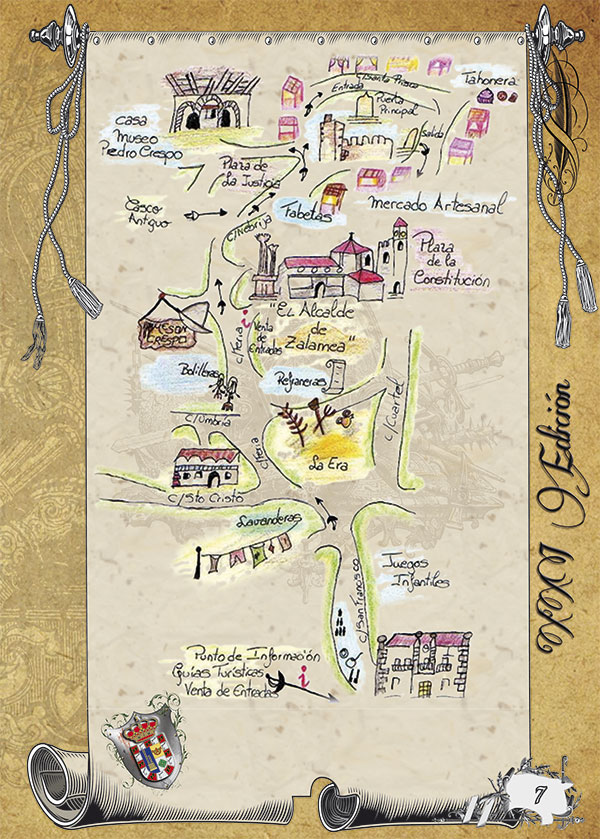 C/Santa Prisca
Entrada
Tahonera
Puerta
Principal
Salida
Casa
Museo
Pedro Crespo
Plaza de
La Justicia
Casco
Antiguo
Tabetas
Mercado Artesanal
C/Nebrija
Plaza
de la
Constitución
"El Alcalde
de
Zalamea"
Mesón
Crespo
C/Feria
i
Venta
de
Entradas
Bolilleras
Refraneras
C/Cuartel
C/Umbría
C/Feria
La Era
C/Sto Cristo
Lavanderas
Juegos
Infantiles
C/San Francisco
Punto de Información
Guías Turísticas
Venta de Entradas
i
XXVI Edición
7